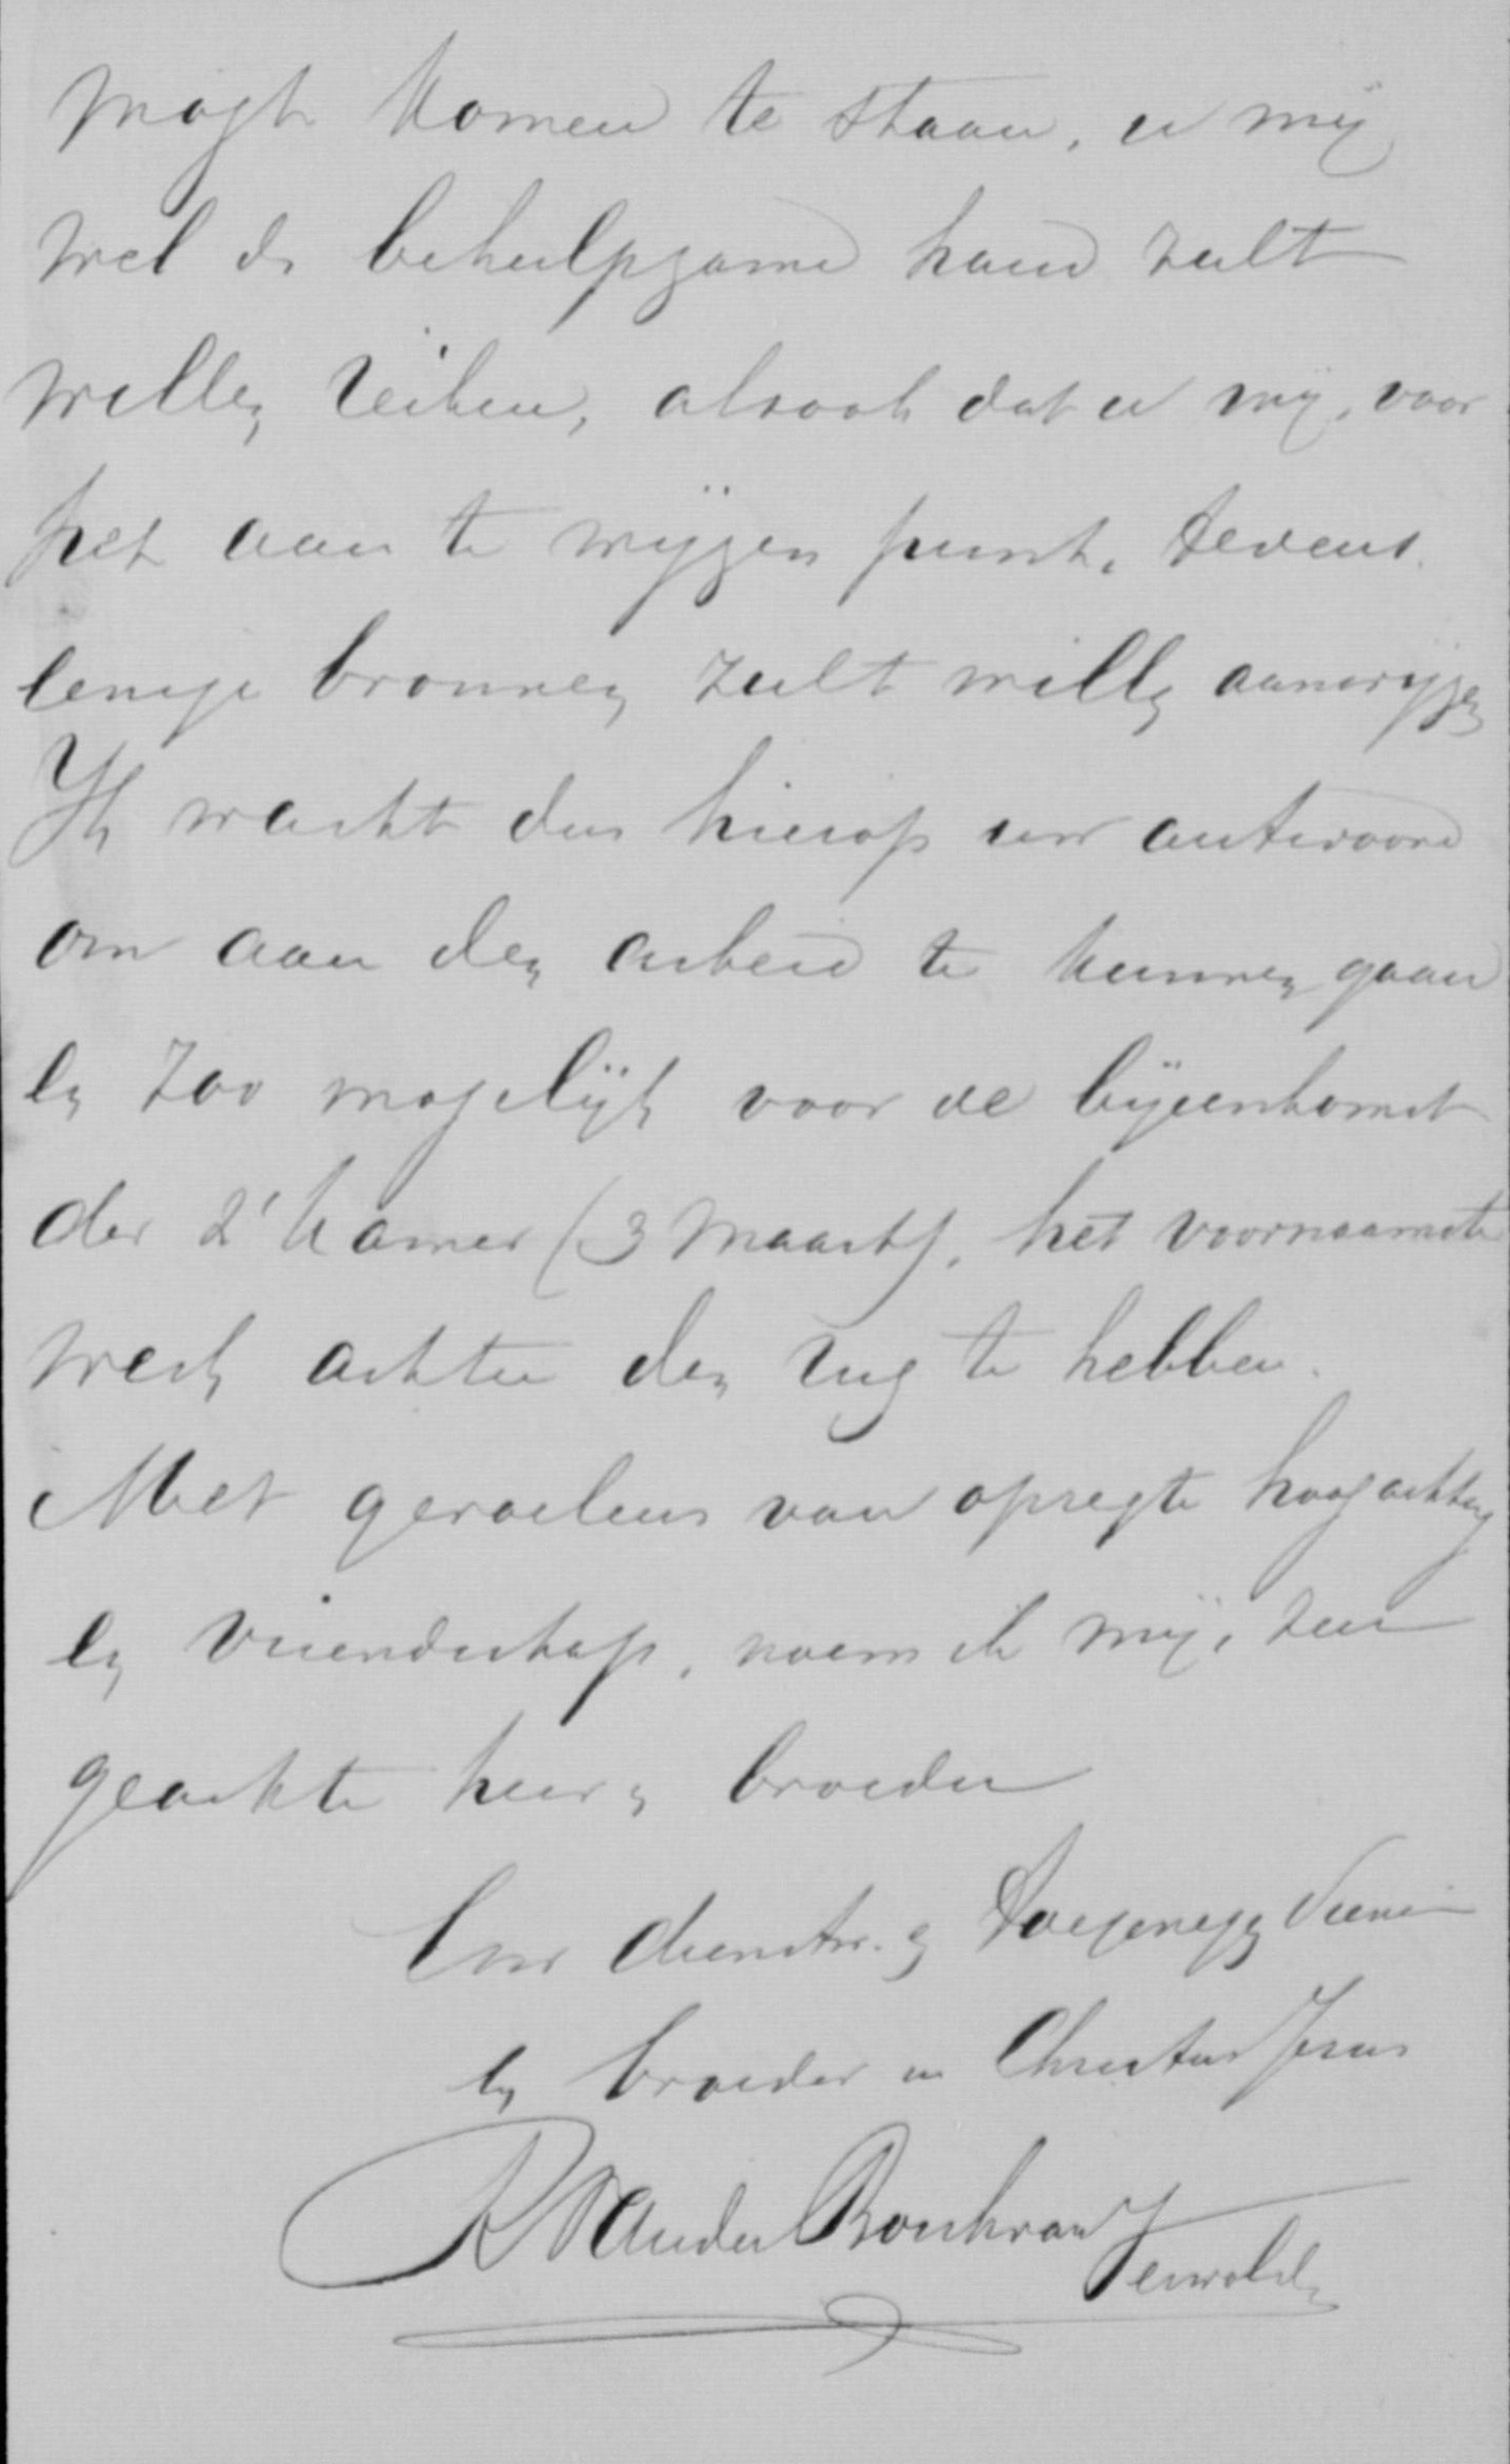 mogt komen te staan, u mij
wel de behulpzame hand zult
willen reiken, alsook dat u mij, voor
het aan te wijzen punt, tevens
eenige bronnen zult willen aanwijzen
Ik wacht dus hierop uw antwoord
om aan den arbeid te kunnen gaan
en zoo mogelijk voor de bijeenkomst
der 2e Kamer (3 Maart), het voornaamste
werk achter den rug te hebben.
Met gevoelens van opregte hoogachting
en vriendschap, noem ik mij, zeer
geachte heer en broeder
Uw dienstw. en toegenegen Vriend
en broeder in Christus Jesus
van der Borch van Verwolde